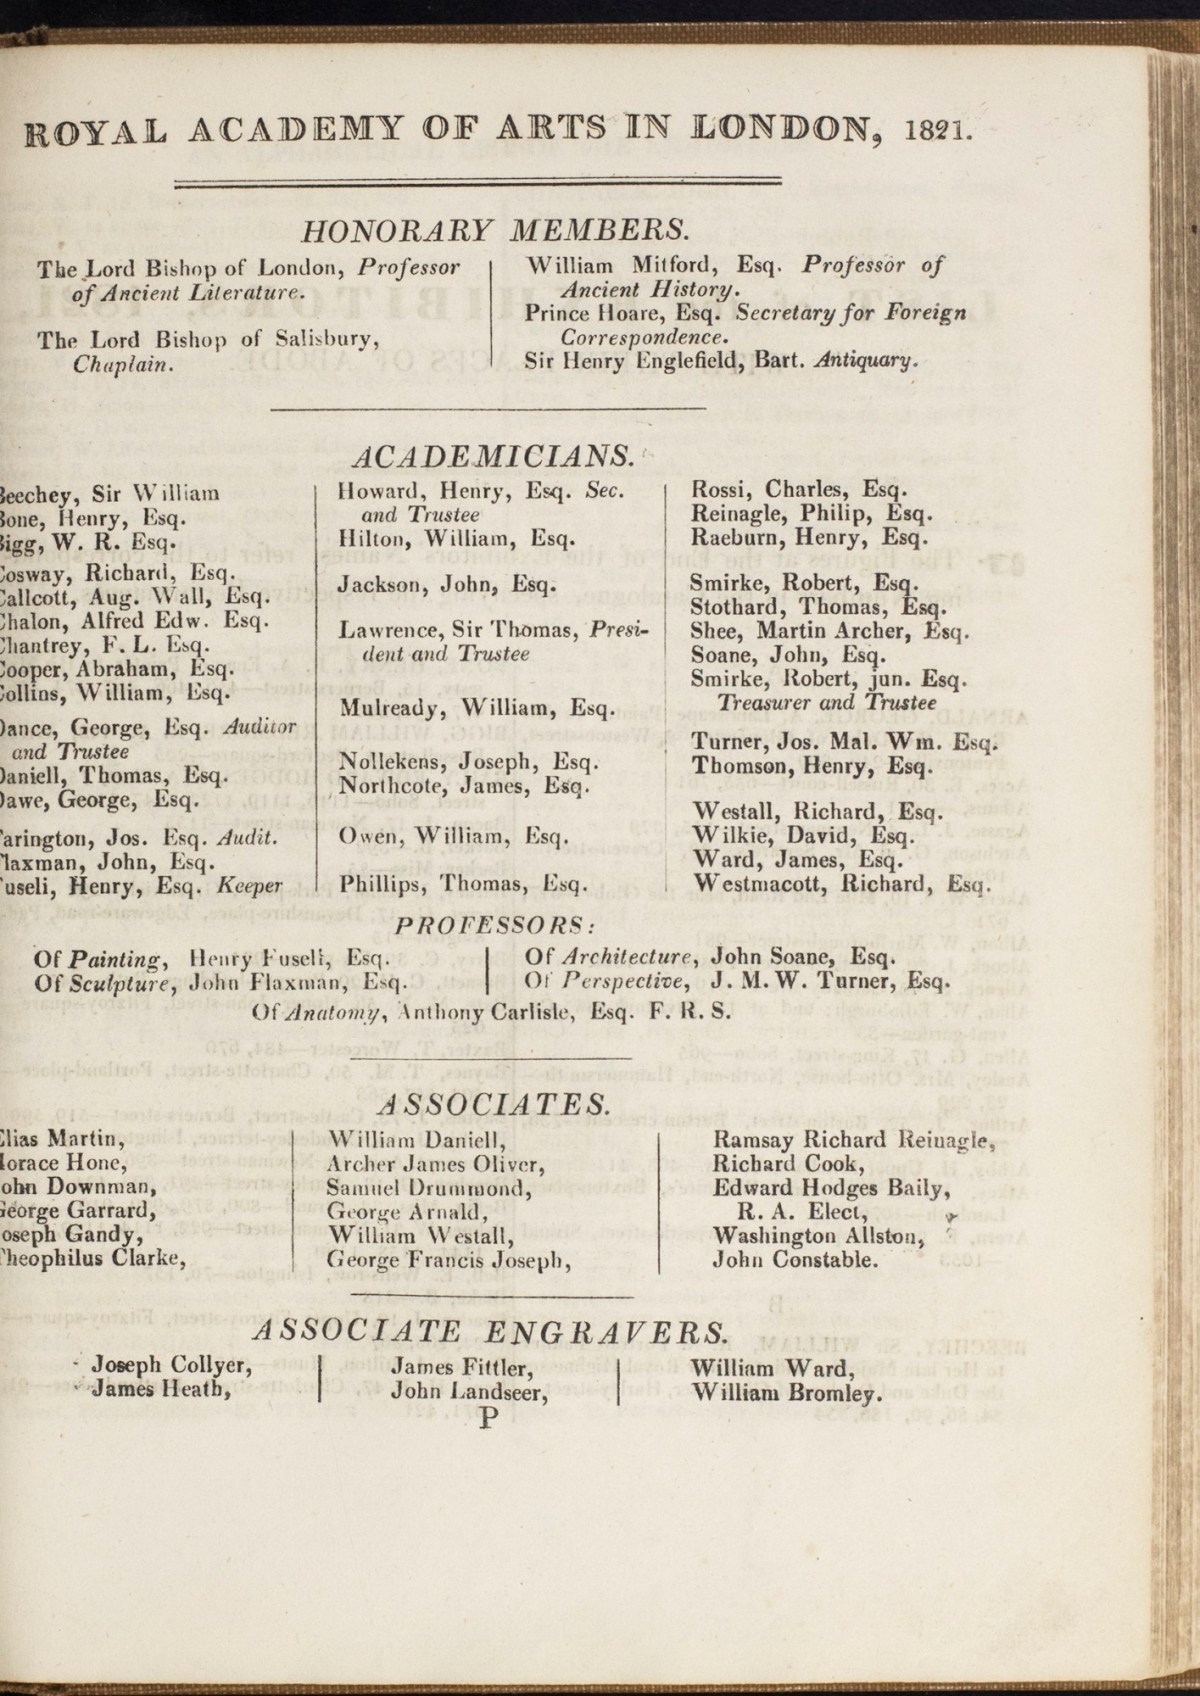 ROYAL ACADEMY OF ARTS IN LONDON, 1821.
HONORARY MEMBERS.
The Lord Bishop of London, Professor
of Ancient Literature.
The Lord Bishop of Salisbury,
Chaplain.
William Mitford, Esq. Professor of
Ancient History.
Prince Hoare, Esq. Secretary for Foreign
Correspondence.
Sir Henry Englefield, Bart. Antiquary.
ACADEMICIANS.
Beechey, Sir William
Bone, Henry, Esq.
Bigg, W. R. Esq.
Cosway, Richard, Esq.
Callcott, Aug. Wall, Esq.
Chalon, Alfred Edw. Esq.
Chantrey, F. L. Esq.
Cooper, Abraham, Esq.
Collins, William, Esq.
Dance, George, Esq. Auditor
and Trustee
Daniell, Thomas, Esq.
Dawe, George, Esq.
Farington, Jos. Esq. Audit.
Flaxman, John, Esq.
Fuseli, Henry, Esq. Keeper
Howard, Henry, Esq. Sec.
and Trustee
Hilton, William, Esq.
Jackson, John, Esq.
Lawrence, Sir Thomas, Presi-
dent and Trustee
Mulready, William, Esq.
Nollekens, Joseph, Esq.
Northcote, James, Esq.
Owen, William, Esq.
Phillips, Thomas, Esq.
Rossi, Charles, Esq.
Reinagle, Philip, Esq.
Raeburn, Henry, Esq.
Smirke, Robert, Esq.
Stothard, Thomas, Esq.
Shee, Martin Archer, Esq.
Soane, John, Esq.
Smirke, Robert, jun. Esq.
Treasurer and Trustee
Turner, Jos. Mal. Wm. Esq.
Thomson, Henry, Esq.
Westall, Richard, Esq.
Wilkie, David, Esq.
Ward, James, Esq.
Westmacott, Richard, Esq.
PROFESSORS:
Of Painting, Henry Fuseli, Esq.
Of Sculpture, John Flaxman, Esq.
Of Architecture, John Soane, Esq.
Of Perspective, J. M. W. Turner, Esq.
Of Anatomy, Anthony Carlisle, Esq. F. R. S.
ASSOCIATES.
Elias Martin,
Horace Hone,
John Downman,
George Garrard,
Joseph Gandy,
Theophilus Clarke,
William Daniell,
Archer James Oliver,
Samuel Drummond,
George Arnald,
William Westall,
George Francis Joseph,
Ramsay Richard Reinagle,
Richard Cook,
Edward Hodges Baily,
R. A. Elect,
Washington Allston,
John Constable.
ASSOCIATE ENGRAVERS.
Joseph Collyer,
James Heath,
James Fittler,
John Landseer,
William Ward,
William Bromley.
P